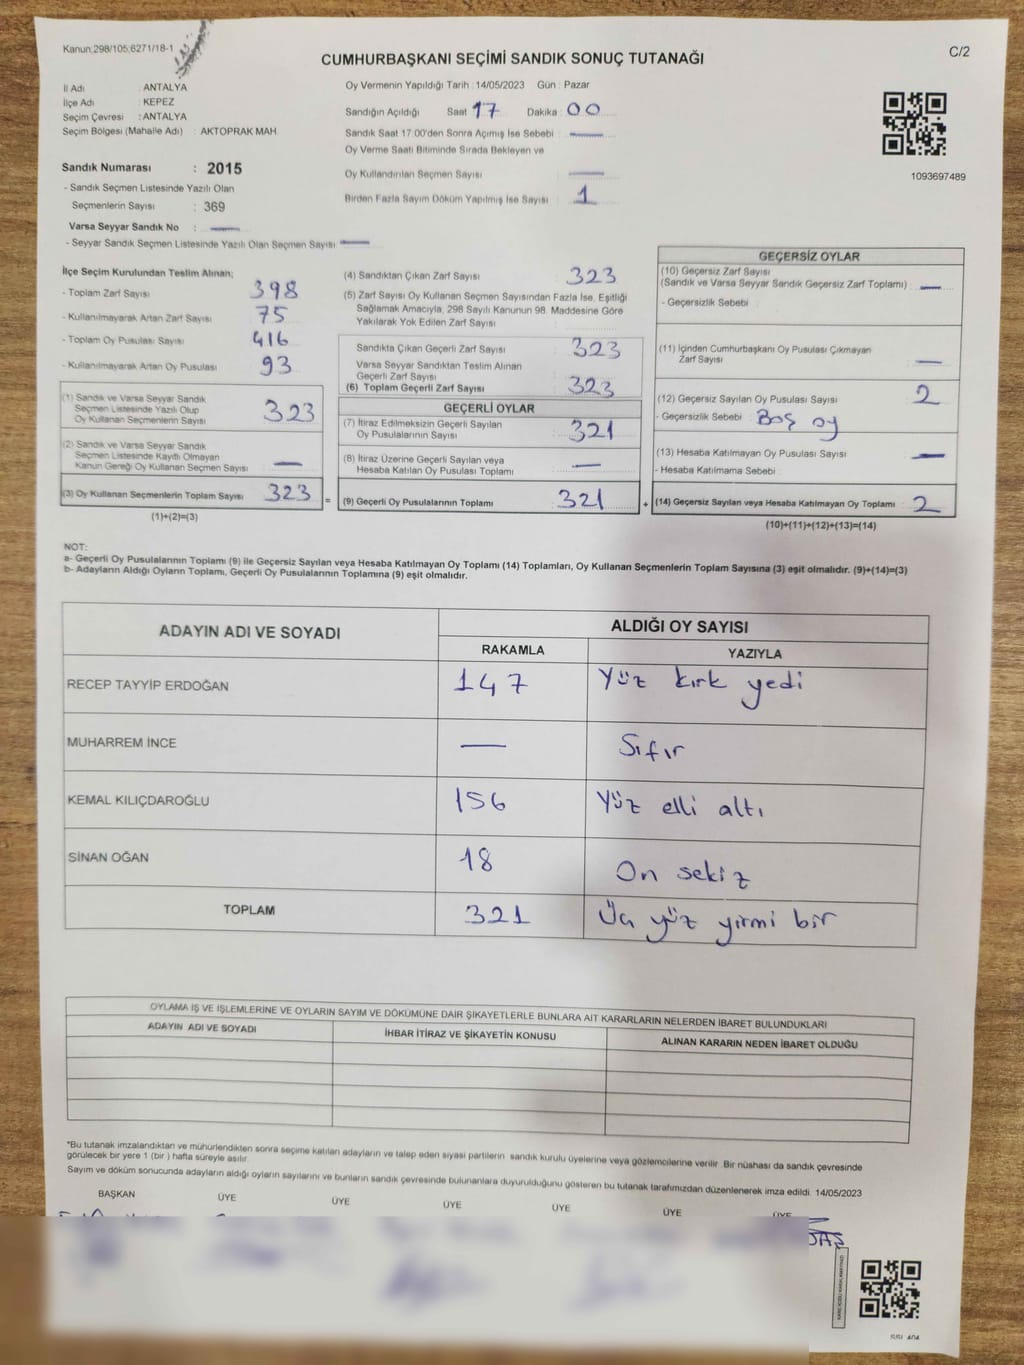 Kanun:298/105;6271/18-1
C/2
CUMHURBAŞKANI SEÇİMİ SANDIK SONUÇ TUTANAĞI
İl Adı : ANTALYA
İlçe Adı : KEPEZ
Seçim Çevresi : ANTALYA
Seçim Bölgesi (Mahalle Adı) : AKTOPRAK MAH.
Oy Vermenin Yapıldığı Tarih : 14/05/2023 Gün : Pazar
Sandığın Açıldığı Saat 17 Dakika : 00
Sandık Saat 17:00'den Sonra Açımış İse Sebebi : —
Oy Verme Saati Bitiminde Sırada Bekleyen ve
Oy Kullandırılan Seçmen Sayısı : —
Birden Fazla Sayım Döküm Yapılmış İse Sayısı : 1
1093697489
Sandık Numarası : 2015
- Sandık Seçmen Listesinde Yazılı Olan
Seçmenlerin Sayısı : 369
Varsa Seyyar Sandık No : —
- Seyyar Sandık Seçmen Listesinde Yazılı Olan Seçmen Sayısı : —
İlçe Seçim Kurulundan Teslim Alınan;
- Toplam Zarf Sayısı : 398
- Kullanılmayarak Artan Zarf Sayısı : 75
- Toplam Oy Pusulası Sayısı : 416
- Kullanılmayarak Artan Oy Pusulası : 93
(1) Sandık ve Varsa Seyyar Sandık
Seçmen Listesinde Yazılı Olup
Oy Kullanan Seçmenlerin Sayısı : 323
(2) Sandık ve Varsa Seyyar Sandık
Seçmen Listesinde Kayıtlı Olmayan
Kanun Gereği Oy Kullanan Seçmen Sayısı : —
(3) Oy Kullanan Seçmenlerin Toplam Sayısı : 323 =
(1)+(2)=(3)
(4) Sandıktan Çıkan Zarf Sayısı : 323
(5) Zarf Sayısı Oy Kullanan Seçmen Sayısından Fazla İse, Eşitliği
Sağlamak Amacıyla, 298 Sayılı Kanunun 98. Maddesine Göre
Yakılarak Yok Edilen Zarf Sayısı :
Sandıkta Çıkan Geçerli Zarf Sayısı : 323
Varsa Seyyar Sandıktan Teslim Alınan
Geçerli Zarf Sayısı :
(6) Toplam Geçerli Zarf Sayısı : 323
GEÇERLİ OYLAR
(7) İtiraz Edilmeksizin Geçerli Sayılan
Oy Pusulalarının Sayısı : 321
(8) İtiraz Üzerine Geçerli Sayılan veya
Hesaba Katılan Oy Pusulası Toplamı : —
(9) Geçerli Oy Pusulalarının Toplamı : 321 +
GEÇERSİZ OYLAR
(10) Geçersiz Zarf Sayısı
(Sandık ve Varsa Seyyar Sandık Geçersiz Zarf Toplamı) : —
- Geçersizlik Sebebi :
(11) İçinden Cumhurbaşkanı Oy Pusulası Çıkmayan
Zarf Sayısı : —
(12) Geçersiz Sayılan Oy Pusulası Sayısı : 2
- Geçersizlik Sebebi : Boş oy
(13) Hesaba Katılmayan Oy Pusulası Sayısı : —
- Hesaba Katılmama Sebebi :
(14) Geçersiz Sayılan veya Hesaba Katılmayan Oy Toplamı : 2
(10)+(11)+(12)+(13)=(14)
NOT:
a- Geçerli Oy Pusulalarının Toplamı (9) ile Geçersiz Sayılan veya Hesaba Katılmayan Oy Toplamı (14) Toplamları, Oy Kullanan Seçmenlerin Toplam Sayısına (3) eşit olmalıdır. (9)+(14)=(3)
b- Adayların Aldığı Oyların Toplamı, Geçerli Oy Pusulalarının Toplamına (9) eşit olmalıdır.
ADAYIN ADI VE SOYADI ALDIĞI OY SAYISI
RAKAMLA YAZIYLA
RECEP TAYYİP ERDOĞAN 147 Yüz kırk yedi
MUHARREM İNCE — Sıfır
KEMAL KILIÇDAROĞLU 156 Yüz elli altı
SİNAN OĞAN 18 On sekiz
TOPLAM 321 Üç yüz yirmi bir
OYLAMA İŞ VE İŞLEMLERİNE VE OYLARIN SAYIM VE DÖKÜMÜNE DAİR ŞİKAYETLERLE BUNLARA AİT KARARLARIN NELERDEN İBARET BULUNDUKLARI
ADAYIN ADI VE SOYADI İHBAR İTİRAZ VE ŞİKAYETİN KONUSU ALINAN KARARIN NEDEN İBARET OLDUĞU
*Bu tutanak imzalandıktan ve mühürlendikten sonra seçime katılan adayların ve talep eden siyasi partilerin sandık kurulu üyelerine veya gözlemcilerine verilir. Bir nüshası da sandık çevresinde
görülecek bir yere 1 (bir) hafta süreyle asılır.
Sayım ve döküm sonucunda adayların aldığı oyların sayılarını ve bunların sandık çevresinde bulunanlara duyurulduğunu gösteren bu tutanak tarafımızdan düzenlenerek imza edildi. 14/05/2023
BAŞKAN ÜYE ÜYE ÜYE ÜYE ÜYE ÜYE